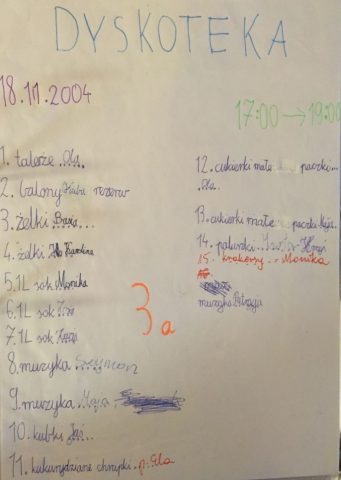 DYSKOTEKA
18.11.2004
17:00 → 19:00
1. talerze Ola
2. balony Kuba rezerw
3. żelki Basia
4. żelki Karolina
5. 1L sok Monika
6. 1L sok
7. 1L sok Kasia
8. muzyka Szymon
9. muzyka Maja
10. kubki Jaś
11. kukurydziane chrupki p. Ela
3a
12. cukierki małe paczki...
Ola
13. cukierki małe paczki Kuja.
14. paluszki
15. krakersy.. Monika
muzyka